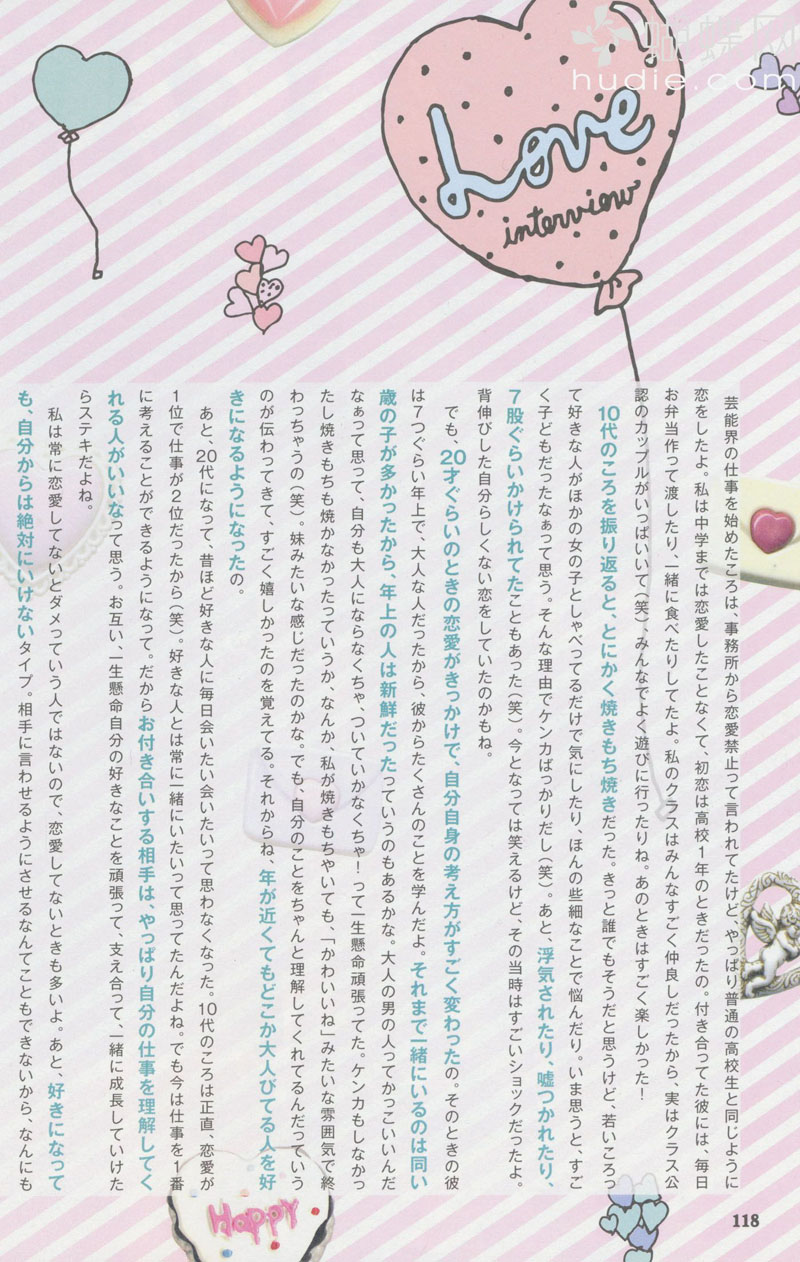 蝴蝶网
hudie.com
Love
interview
芸能界の仕事を始めたころは、事務所から恋愛禁止って言われてたけど、やっぱり普通の高校生と同じように
恋をしたよ。私は中学までは恋愛したことなくて、初恋は高校1年のときだったの。付き合ってた彼には、毎日
お弁当作って渡したり、一緒に食べたりしてたよ。私のクラスはみんなすごく仲良しだったから、実はクラス公
認のカップルがいっぱいいて(笑)、みんなでよく遊びに行ったりね。あのときはすごく楽しかった!
10代のころを振り返ると、とにかく焼きもち焼きだった。きっと誰でもそうだと思うけど、若いころっ
て好きな人がほかの女の子としゃべってるだけで気にしたり、ほんの些細なことで悩んだり。いま思うと、すご
く子どもだったなぁって思う。そんな理由でケンカばっかりだし(笑)。あと、浮気されたり、嘘つかれたり、
7股ぐらいかけられてたこともあった(笑)。今となっては笑えるけど、その当時はすごいショックだったよ。
背伸びした自分らしくない恋をしていたのかもね。
でも、20才ぐらいのときの恋愛がきっかけで、自分自身の考え方がすごく変わったの。そのときの彼
は7つぐらい年上で、大人な人だったから、彼からたくさんのことを学んだよ。それまで一緒にいるのは同い
歳の子が多かったから、年上の人は新鮮だったっていうのもあるかな。大人の男の人ってかっこいいんだ
なぁって思って、自分も大人にならなくちゃ、ついていかなくちゃ!って一生懸命頑張ってた。ケンカもしなかっ
たし焼きもちも焼かなかったっていうか、なんか、私が焼きもちやいても、「かわいいね」みたいな雰囲気で終
わっちゃうの(笑)。妹みたいな感じだったのかな。でも、自分のことをちゃんと理解してくれてるんだっていう
のが伝わってきて、すごく嬉しかったのを覚えてる。それからね、年が近くてもどこか大人びてる人を好
きになるようになったの。
あと、20代になって、昔ほど好きな人に毎日会いたい会いたいって思わなくなった。10代のころは正直、恋愛が
1位で仕事が2位だったから(笑)。好きな人とは常に一緒にいたいって思ってたんだよね。でも今は仕事を1番
に考えることができるようになって。だからお付き合いする相手は、やっぱり自分の仕事を理解してく
れる人がいいなって思う。お互い、一生懸命自分の好きなことを頑張って、支え合って、一緒に成長していけた
らステキだよね。
私は常に恋愛してないとダメっていう人ではないので、恋愛してないときも多いよ。あと、好きになって
も、自分からは絶対にいけないタイプ。相手に言わせるようにさせるなんてこともできないから、なんにも
Happy
118